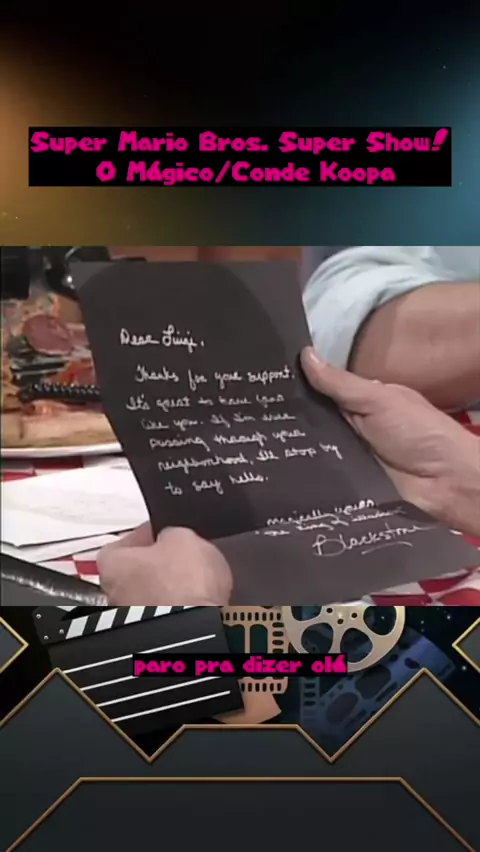 Super Mario Bros. Super Show!
O Mágico/Conde Koopa
Dear Luigi,
Thanks for your support.
It's great to have fans
like you. If I'm ever
passing through your
neighborhood, I'll stop by
to say hello.
magically yours,
"the king of illusion"
Blackstone
paro pra dizer olá